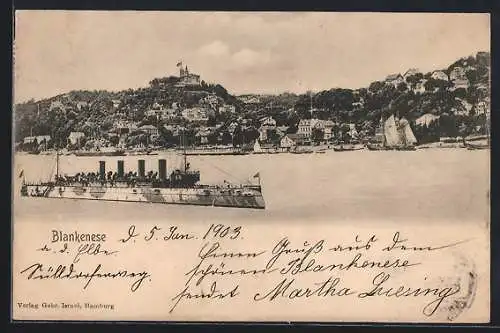 Blankenese d. 5 Jan. 1903.
a. d. Elbe
Sülldorferweg.
Einen Gruß aus dem
schönen Blankenese
sendet Martha Luesing
Verlag Gebr. Israel, Hamburg